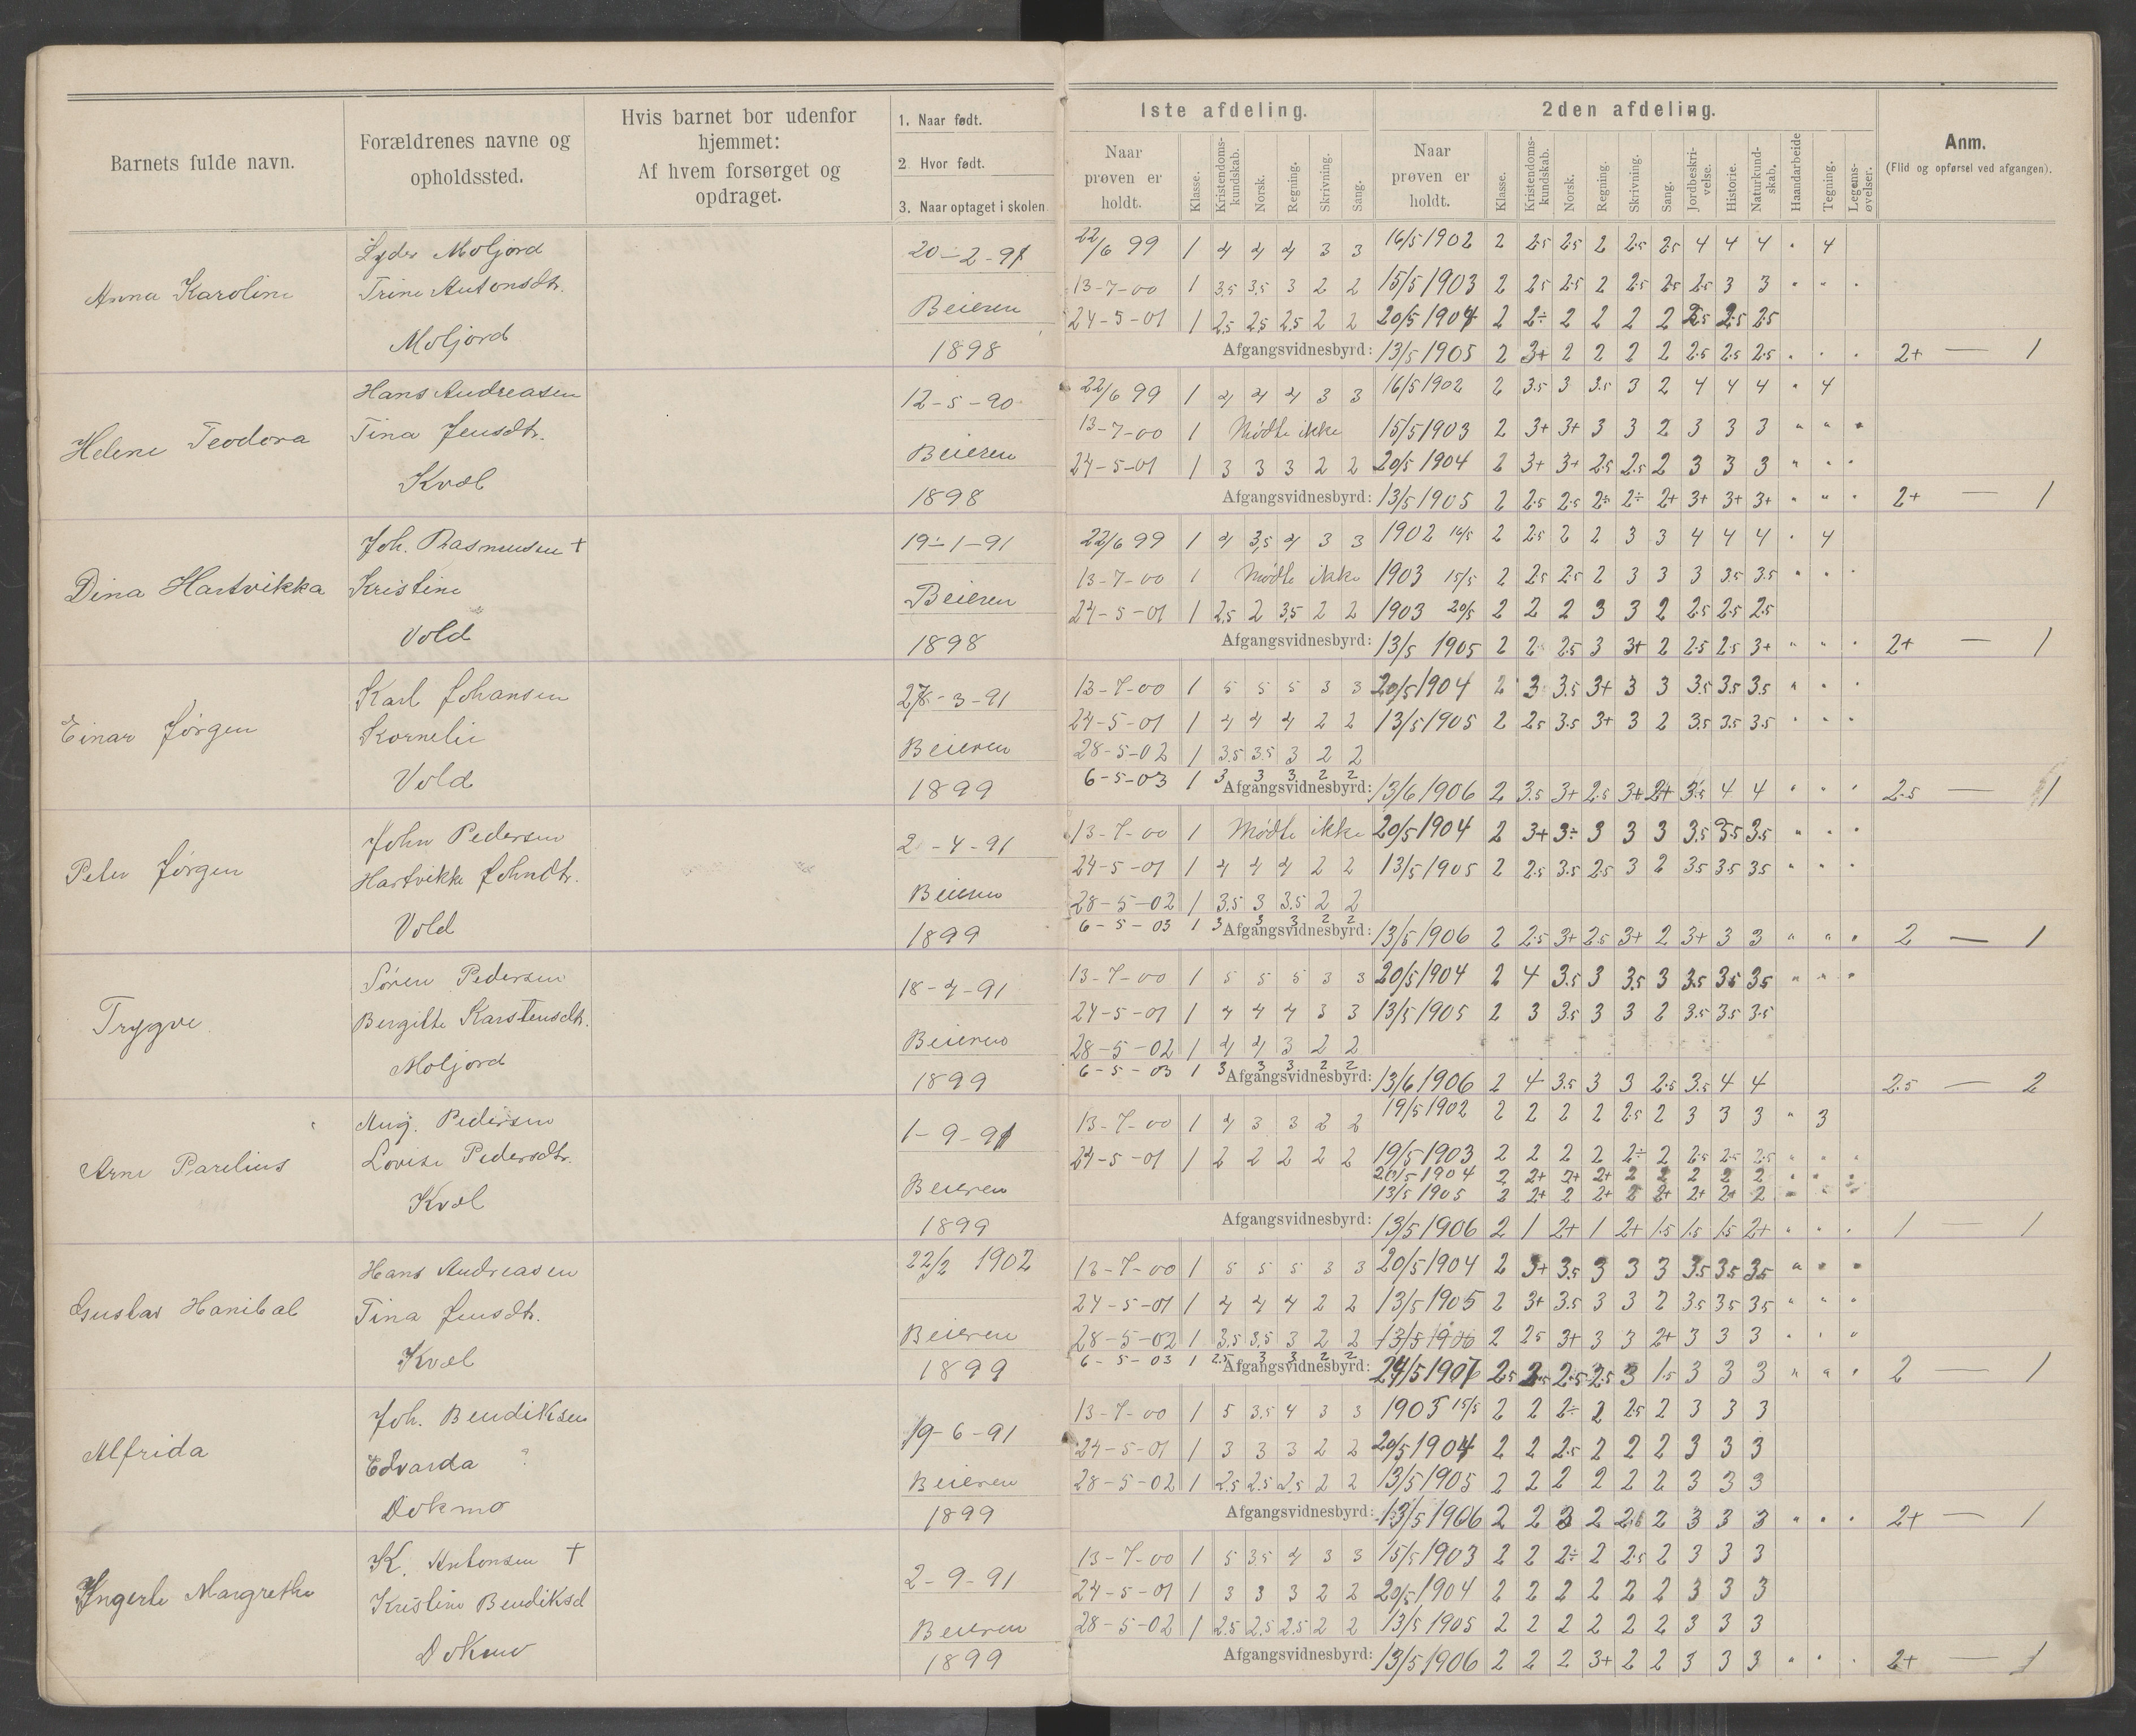 Barnets fulde navn.
Forældrenes navne og
opholdssted.
Hvis barnet bor udenfor
hjemmet:
Af hvem forsørget og
opdraget.
1. Naar født.
2. Hvor født.
3. Naar optaget i skolen
1ste afdeling.
Naar
prøven er
holdt.
Klasse.
Kristendoms-
kundskab.
Norsk.
Regning.
Skrivning.
Sang.
2den afdeling.
Naar
prøven er
holdt.
Klasse.
Kristendoms-
kundskab.
Norsk.
Regning.
Skrivning.
Sang.
Jordbeskri-
velse.
Historie.
Naturkund-
skab.
Haandarbeide
Tegning.
Legems-
øvelser.
Anm.
(Flid og opførsel ved afgangen).
Anna Karoline
Lyder Moljord
Trine Antonsdtr.
Moljord
20-2-91
Beieren
1898
22/6 99 1 4 4 4 3 3 16/5 1902 2 2.5 2.5 2 2.5 2.5 4 4 4 " 4
13-7-00 1 3.5 3.5 3 2 2 15/5 1903 2 2.5 2.5 2 2.5 2.5 2.5 3 3 " " "
24-5-01 1 2.5 2.5 2.5 2 2 20/5 1904 2 2÷ 2 2 2 2 2.5 2.5 2.5
Afgangsvidnesbyrd: 13/5 1905 2 3+ 2 2 2 2 2.5 2.5 2.5 " " " 2+ — 1
Helene Teodora
Hans Andreasen
Tina Jensdtr.
Kvæl
12-5-90
Beieren
1898
22/6 99 1 4 4 4 3 3 16/5 1902 2 3.5 3 3.5 3 2 4 4 4 " 4
13-7-00 1 Mødte ikke 15/5 1903 2 3+ 3+ 3 3 2 3 3 3 " " "
24-5-01 1 3 3 3 2 2 20/5 1904 2 3+ 3+ 2.5 2.5 2 3 3 3 " " "
Afgangsvidnesbyrd: 13/5 1905 2 2.5 2.5 2÷ 2÷ 2+ 3+ 3+ 3+ " " " 2+ — 1
Dina Hartvikka
Joh. Rasmussen +
Kristine
Vold
19-1-91
Beieren
1898
22/6 99 1 4 3,5 4 3 3 1902 16/5 2 2.5 2 2 3 3 4 4 4 " 4
13-7-00 1 Mødte ikke 1903 15/5 2 2.5 2.5 2 3 3 3 3.5 3.5 " " "
24-5-01 1 2.5 2 3.5 2 2 1903 20/5 2 2 2 3 3 2 2.5 2.5 2.5
Afgangsvidnesbyrd: 13/5 1905 2 2 2.5 3 3+ 2 2.5 2.5 3+ " " " 2+ — 1
Einar Jørgen
Karl Johansen
Kornelie
Vold
-3-91
Beieren
1899
13-7-00 1 5 5 5 3 3 20/5 1904 2 3 3.5 3+ 3 3 3.5 3.5 3.5 " " "
24-5-01 1 4 4 4 2 2 13/5 1905 2 2.5 3.5 3+ 3 2 3.5 3.5 3.5 " " "
28-5-02 1 3.5 3.5 3 2 2
6-5-03 1 3 3 3 2 2
Afgangsvidnesbyrd: 13/6 1906 2 3.5 3+ 2.5 3+ 2+ 3.5 4 4 " " " 2.5 — 1
Peter Jørgen
John Pedersen
Hartvikke Johndtr.
Vold
2-4-91
Beieren
1899
13-7-00 1 Mødte ikke 20/5 1904 2 3+ 3÷ 3 3 3 3.5 3.5 3.5 " " "
24-5-01 1 4 4 4 2 2 13/5 1905 2 2.5 3.5 2.5 3 2 3.5 3.5 3.5 " " "
28-5-02 1 3.5 3 3.5 2 2
6-5-03 1 3 3 3 2 2
Afgangsvidnesbyrd: 13/5 1906 2 2.5 3+ 2.5 3+ 2 3+ 3 3 " " " 2 — 1
Trygve
Søren Pedersen
Bergitte Karstensdtr.
Moljord
18-4-91
Beieren
1899
13-7-00 1 5 5 5 3 3 20/5 1904 2 4 3.5 3 3.5 3 3.5 3.5 3.5 " " "
24-5-01 1 4 4 4 3 3 13/5 1905 2 3 3.5 3 3 2 3.5 3.5 3.5
28-5-02 1 4 4 3 2 2
6-5-03 1 3 3 3 2 2
Afgangsvidnesbyrd: 13/6 1906 2 4 3.5 3 3 2.5 3.5 4 4 2.5 — 2
Arne Parelius
Aug. Pedersen
Lovise Pedersdtr.
Kvæl
1-9-91
Beieren
1899
13-7-00 1 4 3 3 2 2 19/5 1902 2 2 2 2 2.5 2 3 3 3 " 3
24-5-01 1 2 2 2 2 2 19/5 1903 2 2 2 2 2÷ 2 2.5 2.5 2.5 " " "
20/5 1904 2 2+ 2+ 2+ 2 2 2 2 2 " " "
13/5 1905 2 2+ 2 2+ 2 2+ 2+ 2+ 2 " " "
Afgangsvidnesbyrd: 13/5 1906 2 1 2+ 1 2+ 1.5 1.5 1.5 2+ " " " 1 — 1
Gustav Hanibal
Hans Andreasen
Tina Jensdtr.
Kvæl
22/2 1902
Beieren
1899
13-7-00 1 5 5 5 3 3 20/5 1904 2 3+ 3.5 3 3 3 3.5 3.5 3.5 " " "
24-5-01 1 4 4 4 2 2 13/5 1905 2 3+ 3.5 3 3 2 3.5 3.5 3.5 " " "
28-5-02 1 3.5 3.5 3 2 2 13/5 1906 2 2.5 3+ 3 3 2+ 3 3 3 " " "
6-5-03 1 2.5 3 3 2 2
Afgangsvidnesbyrd: 24/5 1907 2.5 2.5 2.5 3 1.5 3 3 3 " " " 2 — 1
Alfrida
Joh. Bendiksen
Edvarda ?
Dokmo
19-6-91
Beieren
1899
13-7-00 1 5 3.5 4 3 3 1903 15/5 2 2 2÷ 2 2.5 2 3 3 3
24-5-01 1 3 3 3 2 2 20/5 1904 2 2 2.5 2 2 2 3 3 3
28-5-02 1 2.5 2.5 2.5 2 2 13/5 1905 2 2 2 2 2 2 3 3 3
Afgangsvidnesbyrd: 13/5 1906 2 2 2 2 2 3 3 3 " " " 2+ — 1
Ingerle Margrethe
K. Antonsen +
Kristine Bendiksd
Dokmo
2-9-91
Beieren
1899
13-7-00 1 5 3.5 4 3 3 15/5 1903 2 2 2÷ 2 2.5 2 3 3 3
24-5-01 1 3 3 3 2 2 20/5 1904 2 2 2 2 2 2 3 3 3
28-5-02 1 2.5 2.5 2.5 2 2 13/5 1905 2 2 2 2 2 2 3 3 3
Afgangsvidnesbyrd: 13/5 1906 2 2 2 3+ 2 2 3 3 3 " " " 2+ — 1